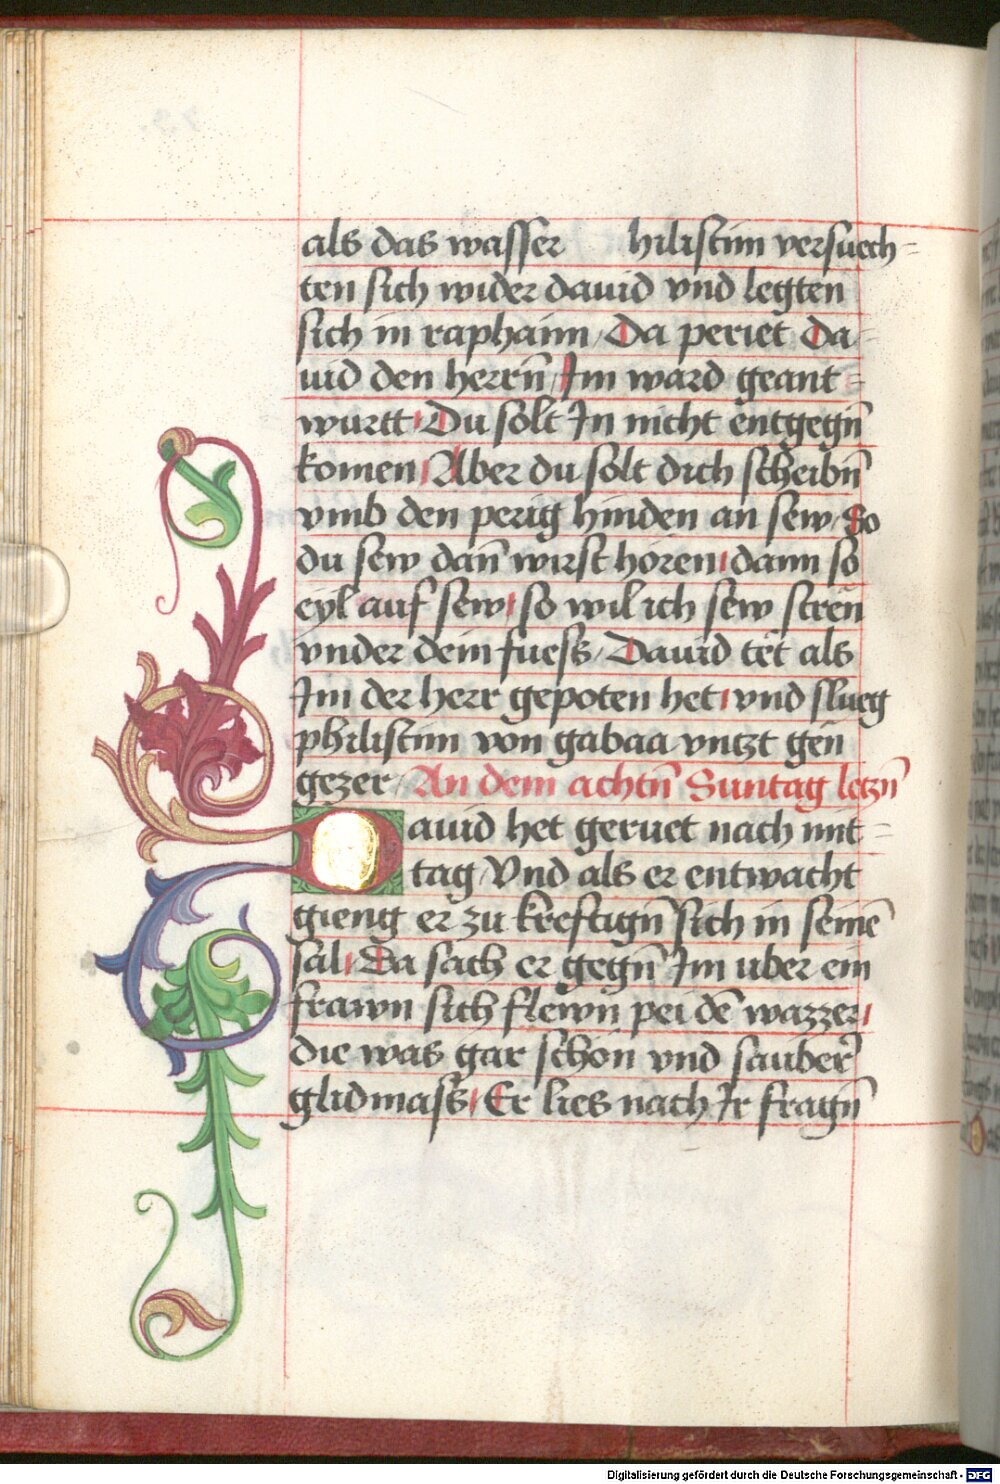 als das wasser hilistim versuech=
ten sich wider dauid vnd legten
sich in raphaim / Da periet Da=
uid den herrn̄ / Im ward geant=
wurtt / Du solt In nicht entgegn̄
komen / Aber du solt dich scheibn̄
vmb den perig hinden an sew / So
du sew dan̄ wirst hören / dann so
eyl auf sew / so wil ich sew strēn
vnder dein fuess / Dauid tet als
Im der herr gepoten het / vnd slueg
philistim von gabaa vntzt gen
gezer / An dem achtn̄ Suntag letzn̄
Dauid het geruet nach mit=
tag / Vnd als er entwacht
gieng er zu kreftign̄ sich in seinē
sal / Da sach er gegn̄ Im uber ein
frawn sich flewn pei dē wazzer /
die was gar schön vnd sauber
glidmass / Er lies nach Ir fragn̄
Digitalisierung gefördert durch die Deutsche Forschungsgemeinschaft - DFG